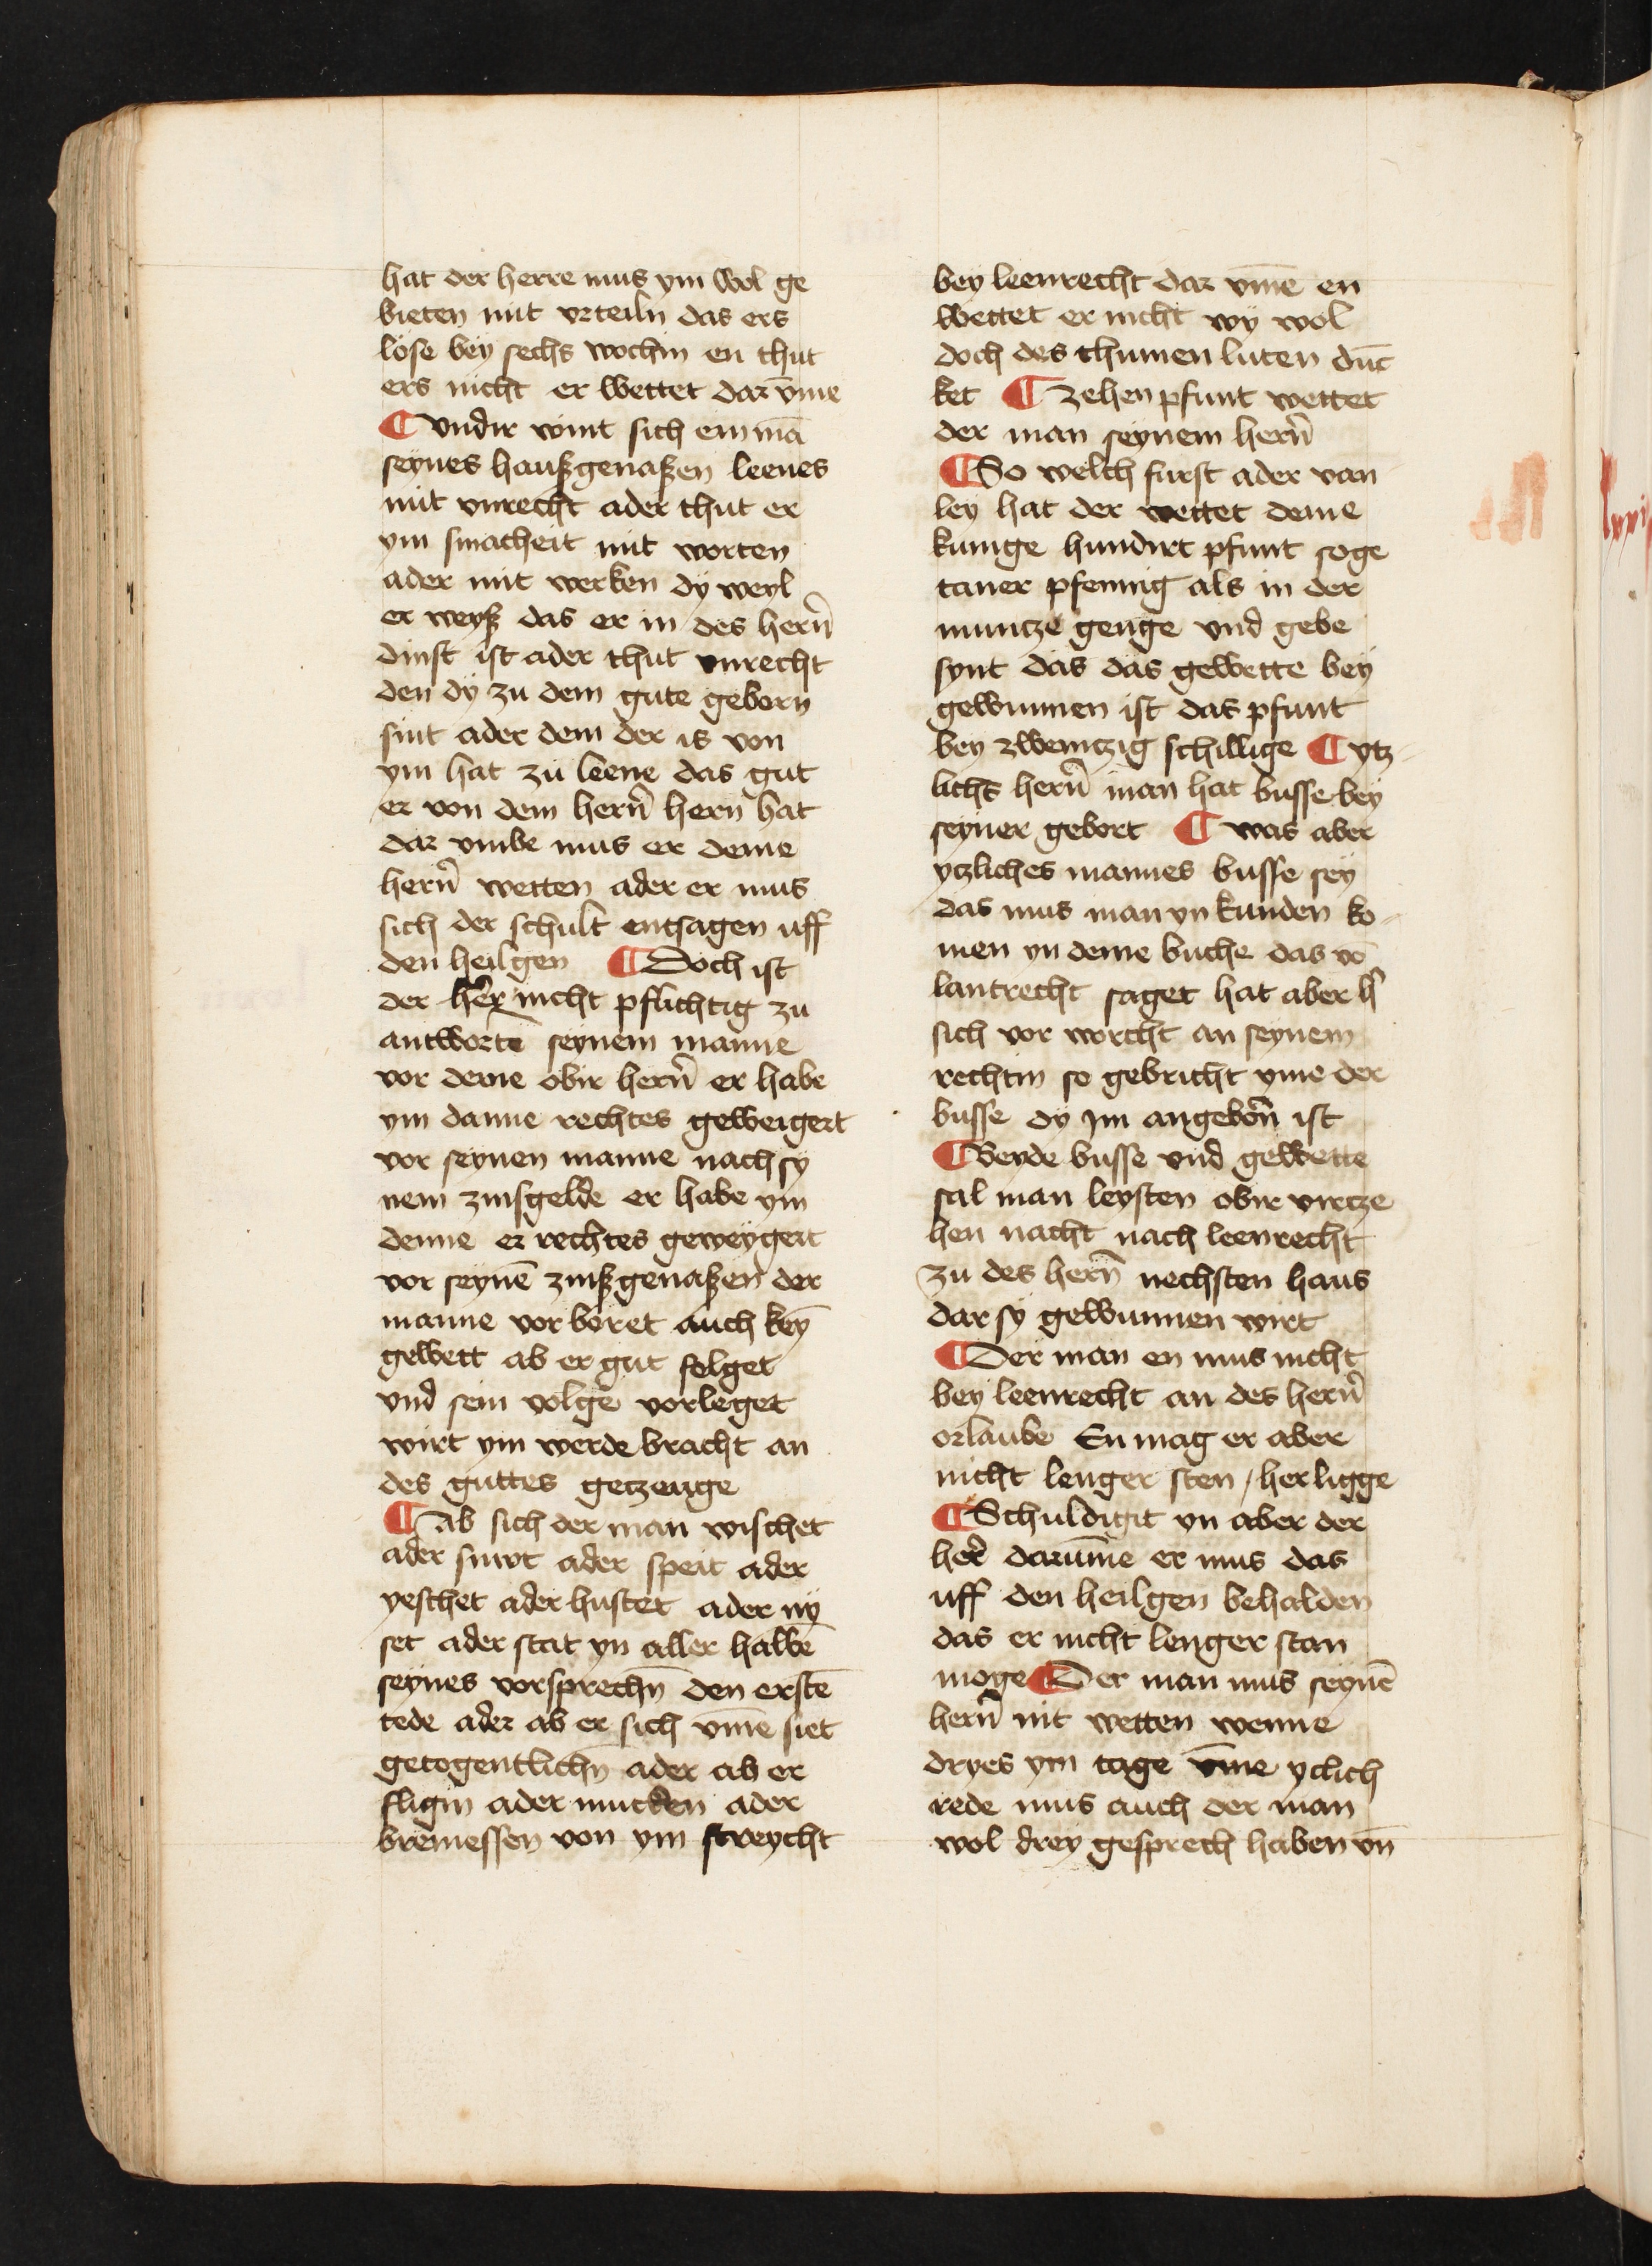 hat der herre mus ym wol ge
bieten mit vrteiln das ers
löse bey sechs wochin en thut
ers nicht er wettet dar vm̄e
¶ vndir wint sich ein mā
seynes haußgenaßen leenes
mit vnrecht ader thut er
ym smacheit mit worten
ader mit werken dÿ weyl
er weyß das er in des hern̄
dinst ist ader thut vnrecht
den dÿ zu dem gute geborn
sint ader dem der is von
ym hat zu leene das gut
er von dem hern̄ hern hat
dar vmbe mus er deme
hern̄ wetten ader er mus
sich der schult entsagen uff
den heilgen ¶ Doch ist
der her̄ nicht pflichtig zu
antwortē seynem manne
vor deme obir hern̄ er habe
ym danne rechtes geweigert
vor seynen manne nach sy
nem zinsgelde er habe ym
denne er rechtes geweÿgert
vor seynē zinßgenaßen der
manne vorboret auch keȳ
gewett ab er gut folget
vnd sein volge vorleget
wirt ym werde bracht an
des guttes getzeuge
¶ ab sich der man wischet
ader snwt ader speit ader
yeschet ader hustet ader nÿ
set ader stat yn aller halbē
seynes vorsprechn̄ den erstē
tede ader ab er sich vm̄e siet
getogentlichn̄ ader ab er
fligin ader mucken ader
bremessen von ym streycht
bey leenrecht dar vm̄e en
wettet er nicht wÿ wol
doch des thumen luten dūc
ket ¶ zehen pfunt wettet
der man seynem hern̄
¶ So welch furst ader van
ley hat der wettet deme
kunige hundirt pfunt soge
taner pfennig als in der
muntze genge vnd gebe
synt das das gewette bey
gewunnen ist das pfunt
bey zwentzig schillige ¶ ytz-
lichs hern̄ man hat busse bey
seyner gebort ¶ was aber
ytzliches mannes busse sey
das mus man yn kunden ko-
men yn deme buche das vō
lantrecht saget hat aber h̄
sich vor worcht an seynem
rechtin so gebricht yme der
busse dy jm angebōn ist
¶ Beyde busse vnd gewette
sal man leysten obir virtze
hen nacht nach leenrecht
zu des hern̄ nechsten haus
dar sy gewunnen wirt
¶ Der man en mus nicht
bey leenrecht an des hern̄
orlaube En mag er aber
nicht lenger sten / her ligge
¶ Schuldigit yn aber der
her̄ darum̄e er mus das
uff den heilgen behalden
das er nicht lenger stan
moge ¶ Der man mus seynē
hern̄ nit wetten wenne
dryes ym tage vm̄e yclich
rede mus auch der man
wol drey gesprech haben vn̄